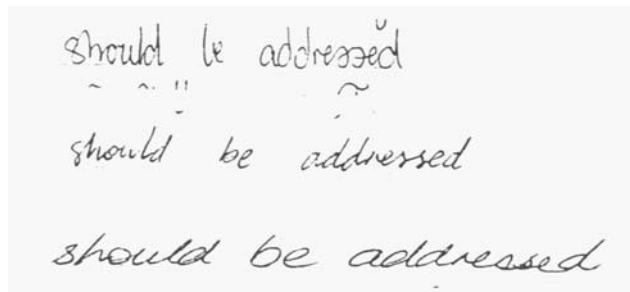 should be addressed
should be addressed
should be addressed